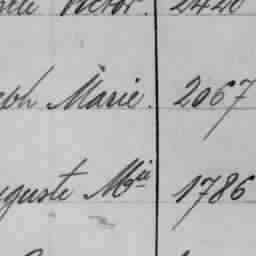 Victor. 2420
eph Marie. 2067
uguste Mie 1786